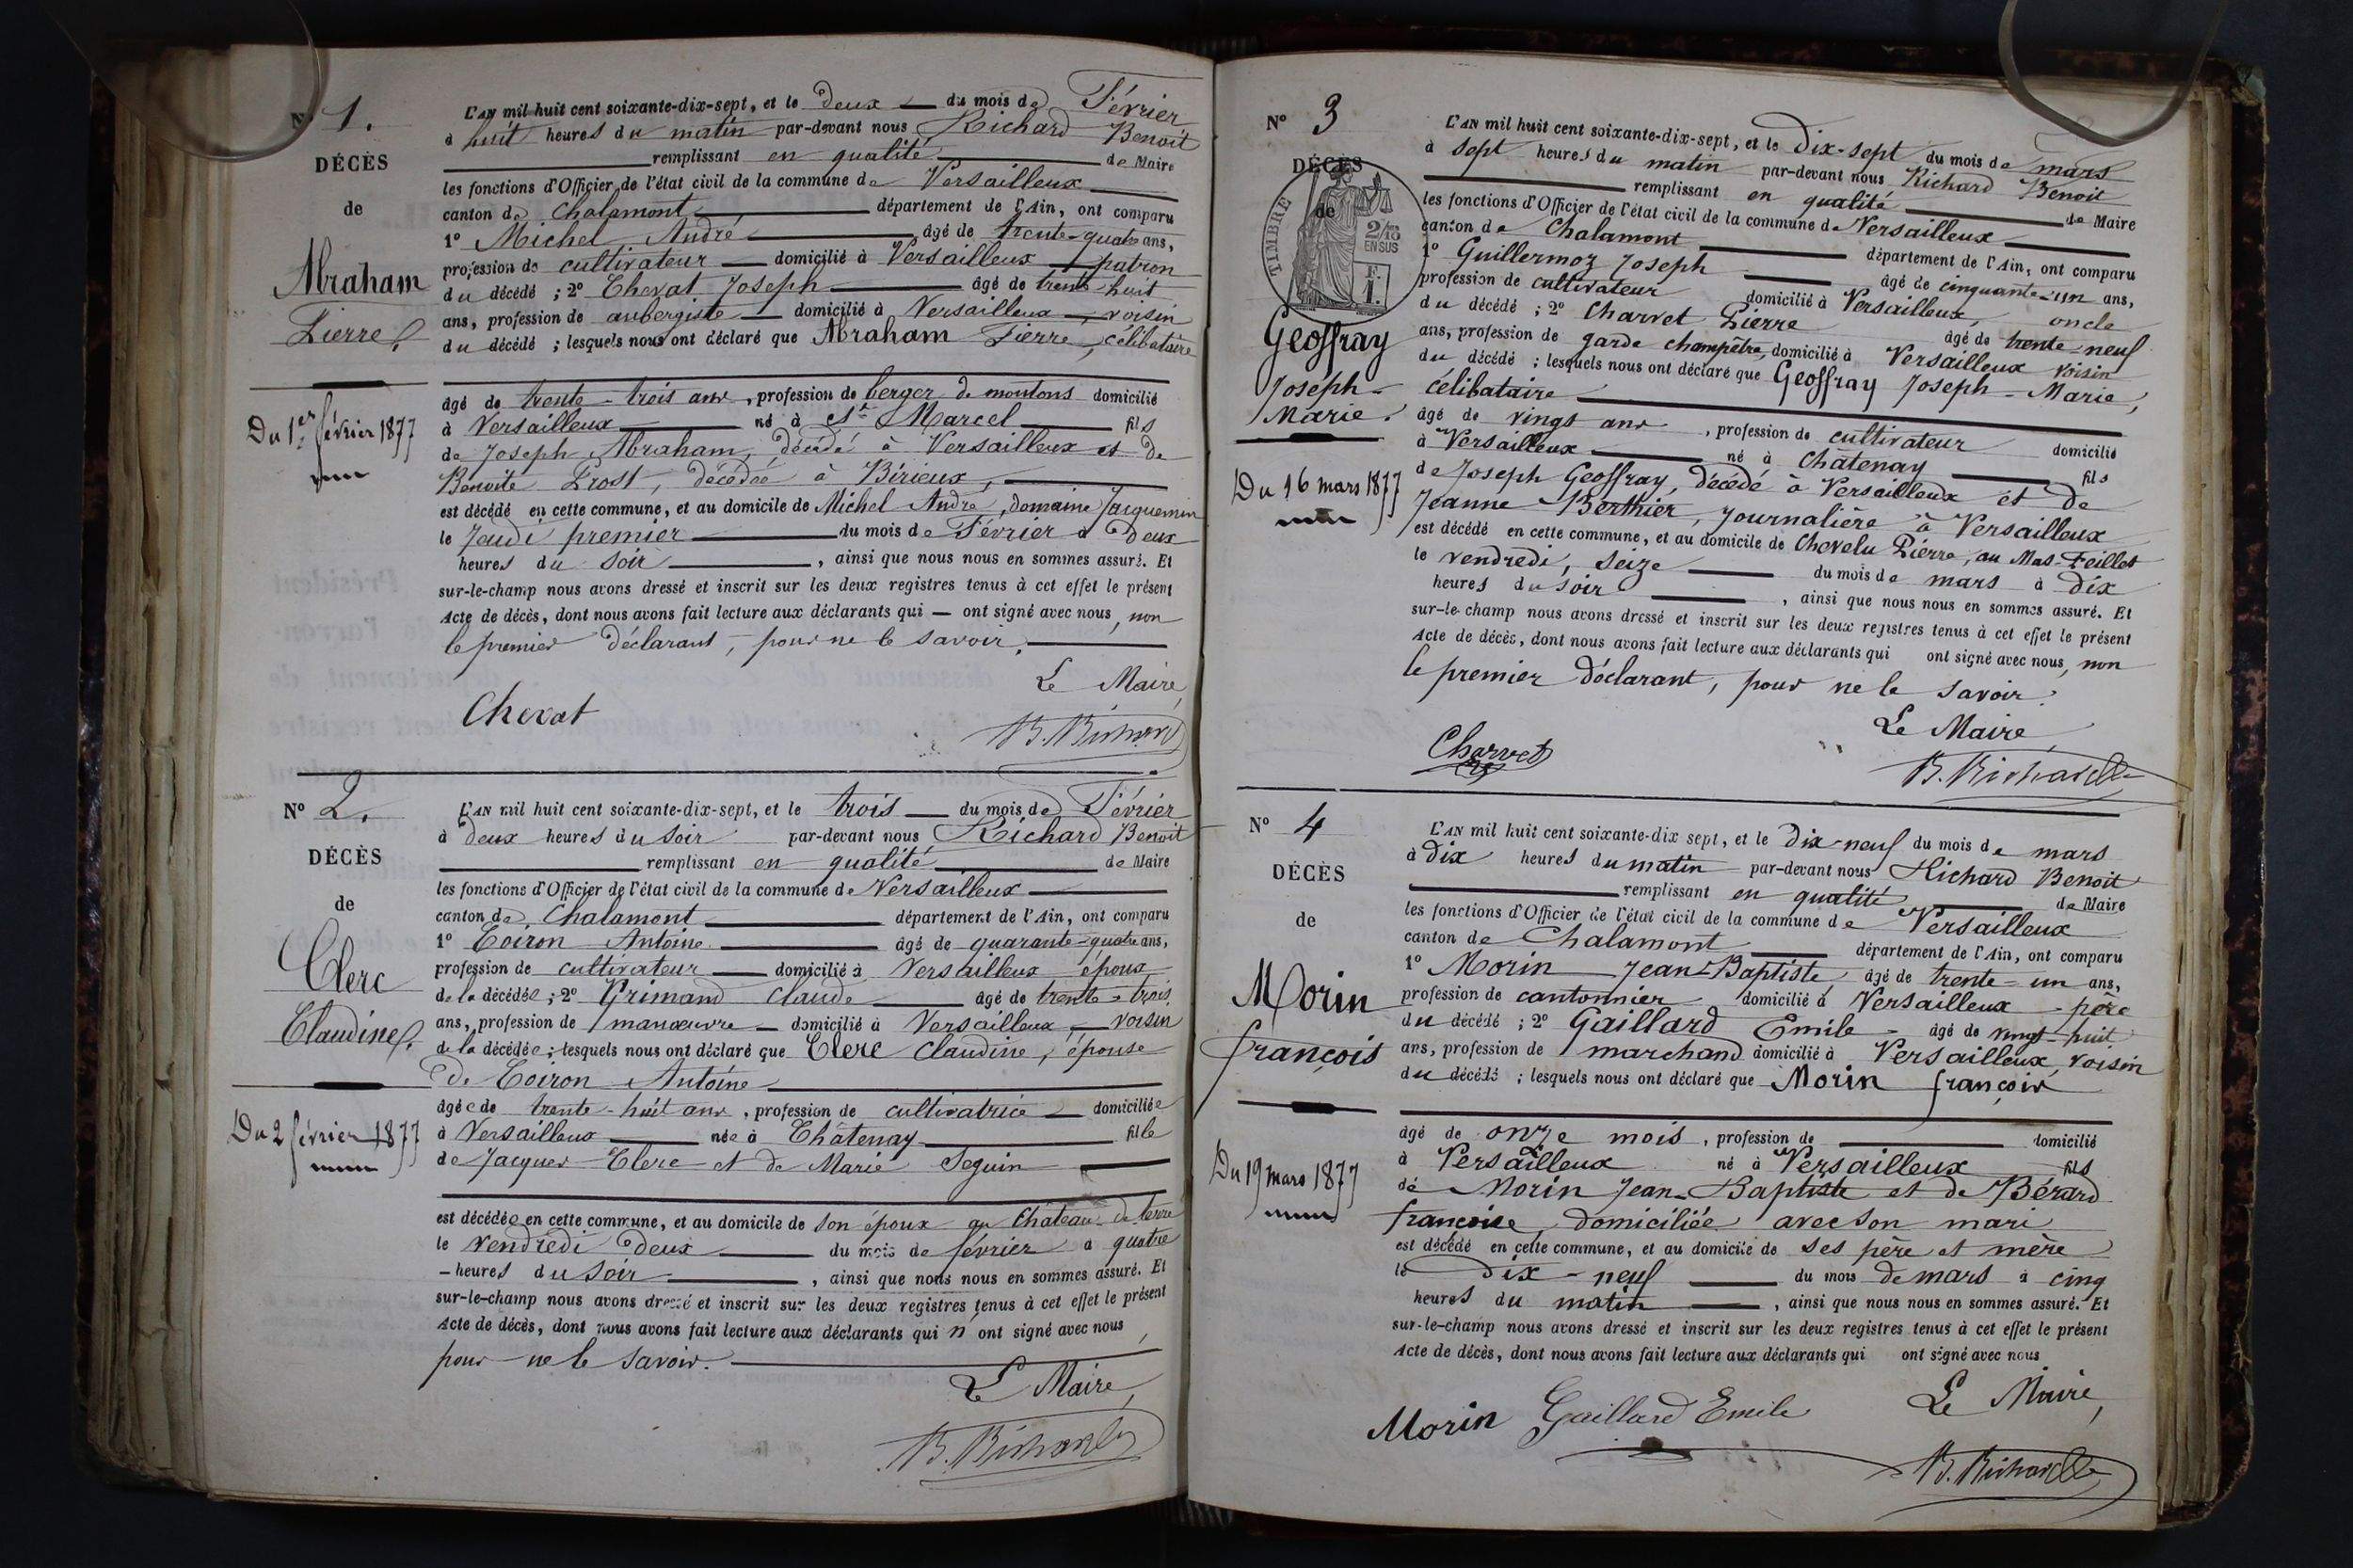 N° 1.
DÉCÈS
de
Abraham
Pierre.
Du 1er février 1877
L'AN mil huit cent soixante-dix-sept, et le deux du mois de Février
à huit heures du matin par-devant nous Richard Benoit
remplissant en qualité de Maire
les fonctions d'Officier de l'état civil de la commune de Versailleux
canton de Chalamont département de l'Ain, ont comparu
1° Michel André âgé de trente-quatre ans,
profession de cultivateur domicilié à Versailleux, patron
du décédé ; 2° Chevat Joseph âgé de trente huit
ans, profession de aubergiste domicilié à Versailleux, voisin
du décédé ; lesquels nous ont déclaré que Abraham Pierre, célibataire
âgé de trente-trois ans, profession de berger de moutons domicilié
à Versailleux né à St Marcel fils
de Joseph Abraham, décédé à Versailleux et de
Benoite Prost, décédée à Birieux,
est décédé en cette commune, et au domicile de Michel André, domaine Jacquemin
le Jeudi premier du mois de Février à Deux
heures du soir, ainsi que nous nous en sommes assuré. Et
sur-le-champ nous avons dressé et inscrit sur les deux registres tenus à cet effet le présent
Acte de décès, dont nous avons fait lecture aux déclarants qui — ont signé avec nous, non
le premier déclarant, pour ne le savoir.
Le Maire,
Chevat
B. Richard
N° 2.
DÉCÈS
de
Clerc
Claudine.
Du 2 février 1877
L'AN mil huit cent soixante-dix-sept, et le trois du mois de Février
à deux heures du soir par-devant nous Richard Benoit
remplissant en qualité de Maire
les fonctions d'Officier de l'état civil de la commune de Versailleux
canton de Chalamont département de l'Ain, ont comparu
1° Coiron Antoine âgé de quarante-quatre ans,
profession de cultivateur domicilié à Versailleux époux
de la décédée ; 2° Grimand Claude âgé de trente-trois
ans, profession de manœuvre domicilié à Versailleux, voisin
de la décédée ; lesquels nous ont déclaré que Clerc Claudine, épouse
de Coiron Antoine
âgée de trente-huit ans, profession de cultivatrice domiciliée
à Versailleux née à Châtenay fille
de Jacques Clerc et de Marie Seguin
est décédée en cette commune, et au domicile de son époux au Chateau de terre
le vendredi deux du mois de février à quatre
heures du soir, ainsi que nous nous en sommes assuré. Et
sur-le-champ nous avons dressé et inscrit sur les deux registres tenus à cet effet le présent
Acte de décès, dont nous avons fait lecture aux déclarants qui n'ont signé avec nous,
pour ne le savoir.
Le Maire,
B. Richard
N° 3
DÉCÈS
de
TIMBRE
2/10 EN SUS
F.
1.
Geoffray
Joseph-
Marie.
Du 16 mars 1877
L'AN mil huit cent soixante-dix-sept, et le Dix-sept du mois de mars
à sept heures du matin par-devant nous Richard Benoit
remplissant en qualité de Maire
les fonctions d'Officier de l'état civil de la commune de Versailleux
canton de Chalamont département de l'Ain, ont comparu
1° Guillermoz Joseph âgé de cinquante-un ans,
profession de cultivateur domicilié à Versailleux, oncle
du décédé ; 2° Charvet Pierre âgé de trente-neuf
ans, profession de garde champêtre, domicilié à Versailleux voisin
du décédé ; lesquels nous ont déclaré que Geoffray Joseph-Marie,
célibataire
âgé de vingt ans, profession de cultivateur domicilié
à Versailleux né à Châtenay fils
de Joseph Geoffray, décédé à Versailleux et de
Jeanne Berthier, journalière à Versailleux
est décédé en cette commune, et au domicile de Chevelu Pierre, au Mas-Feillet
le vendredi, seize du mois de mars à dix
heures du soir, ainsi que nous nous en sommes assuré. Et
sur-le-champ nous avons dressé et inscrit sur les deux registres tenus à cet effet le présent
Acte de décès, dont nous avons fait lecture aux déclarants qui ont signé avec nous, non
le premier déclarant, pour ne le savoir.
Le Maire,
Charvet
B. Richard
N° 4
DÉCÈS
de
Morin
françois
Du 19 mars 1877
L'AN mil huit cent soixante-dix sept, et le dix-neuf du mois de mars
à dix heures du matin par-devant nous Richard Benoit
remplissant en qualité de Maire
les fonctions d'Officier de l'état civil de la commune de Versailleux
canton de Chalamont département de l'Ain, ont comparu
1° Morin Jean-Baptiste âgé de trente-un ans,
profession de cantonnier domicilié à Versailleux père
du décédé ; 2° Gaillard Emile âgé de vingt-huit
ans, profession de marchand domicilié à Versailleux, voisin
du décédé ; lesquels nous ont déclaré que Morin françois
âgé de onze mois, profession de domicilié
à Versailleux né à Versailleux fils
de Morin Jean-Baptiste et de Bérard
françoise, domiciliée avec son mari
est décédé en cette commune, et au domicile de ses père et mère
le dix-neuf du mois de mars à cinq
heures du matin, ainsi que nous nous en sommes assuré. Et
sur-le-champ nous avons dressé et inscrit sur les deux registres tenus à cet effet le présent
Acte de décès, dont nous avons fait lecture aux déclarants qui ont signé avec nous
Le Maire,
Morin Gaillard Emile
B. Richard